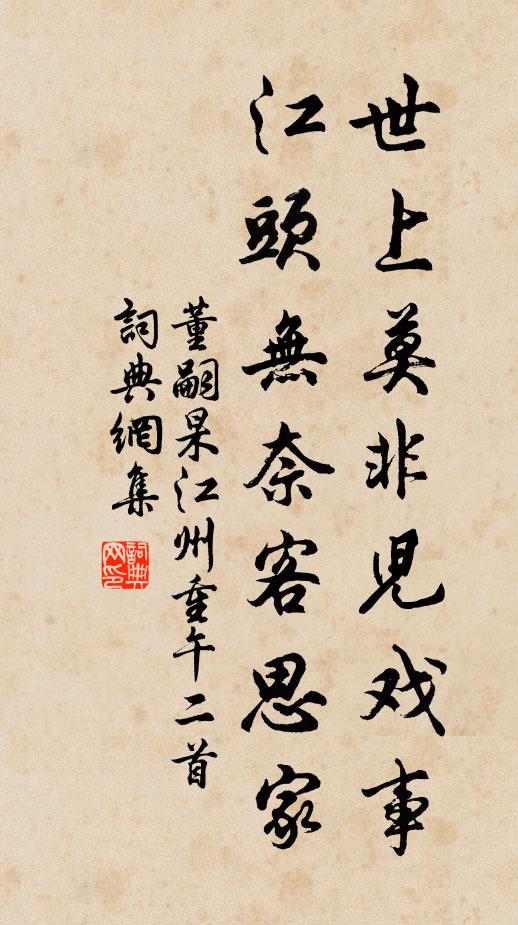 世上莫非児戏事
江頭無奈客思家
董嗣杲江州重午二首
詞典網集
詞典網印